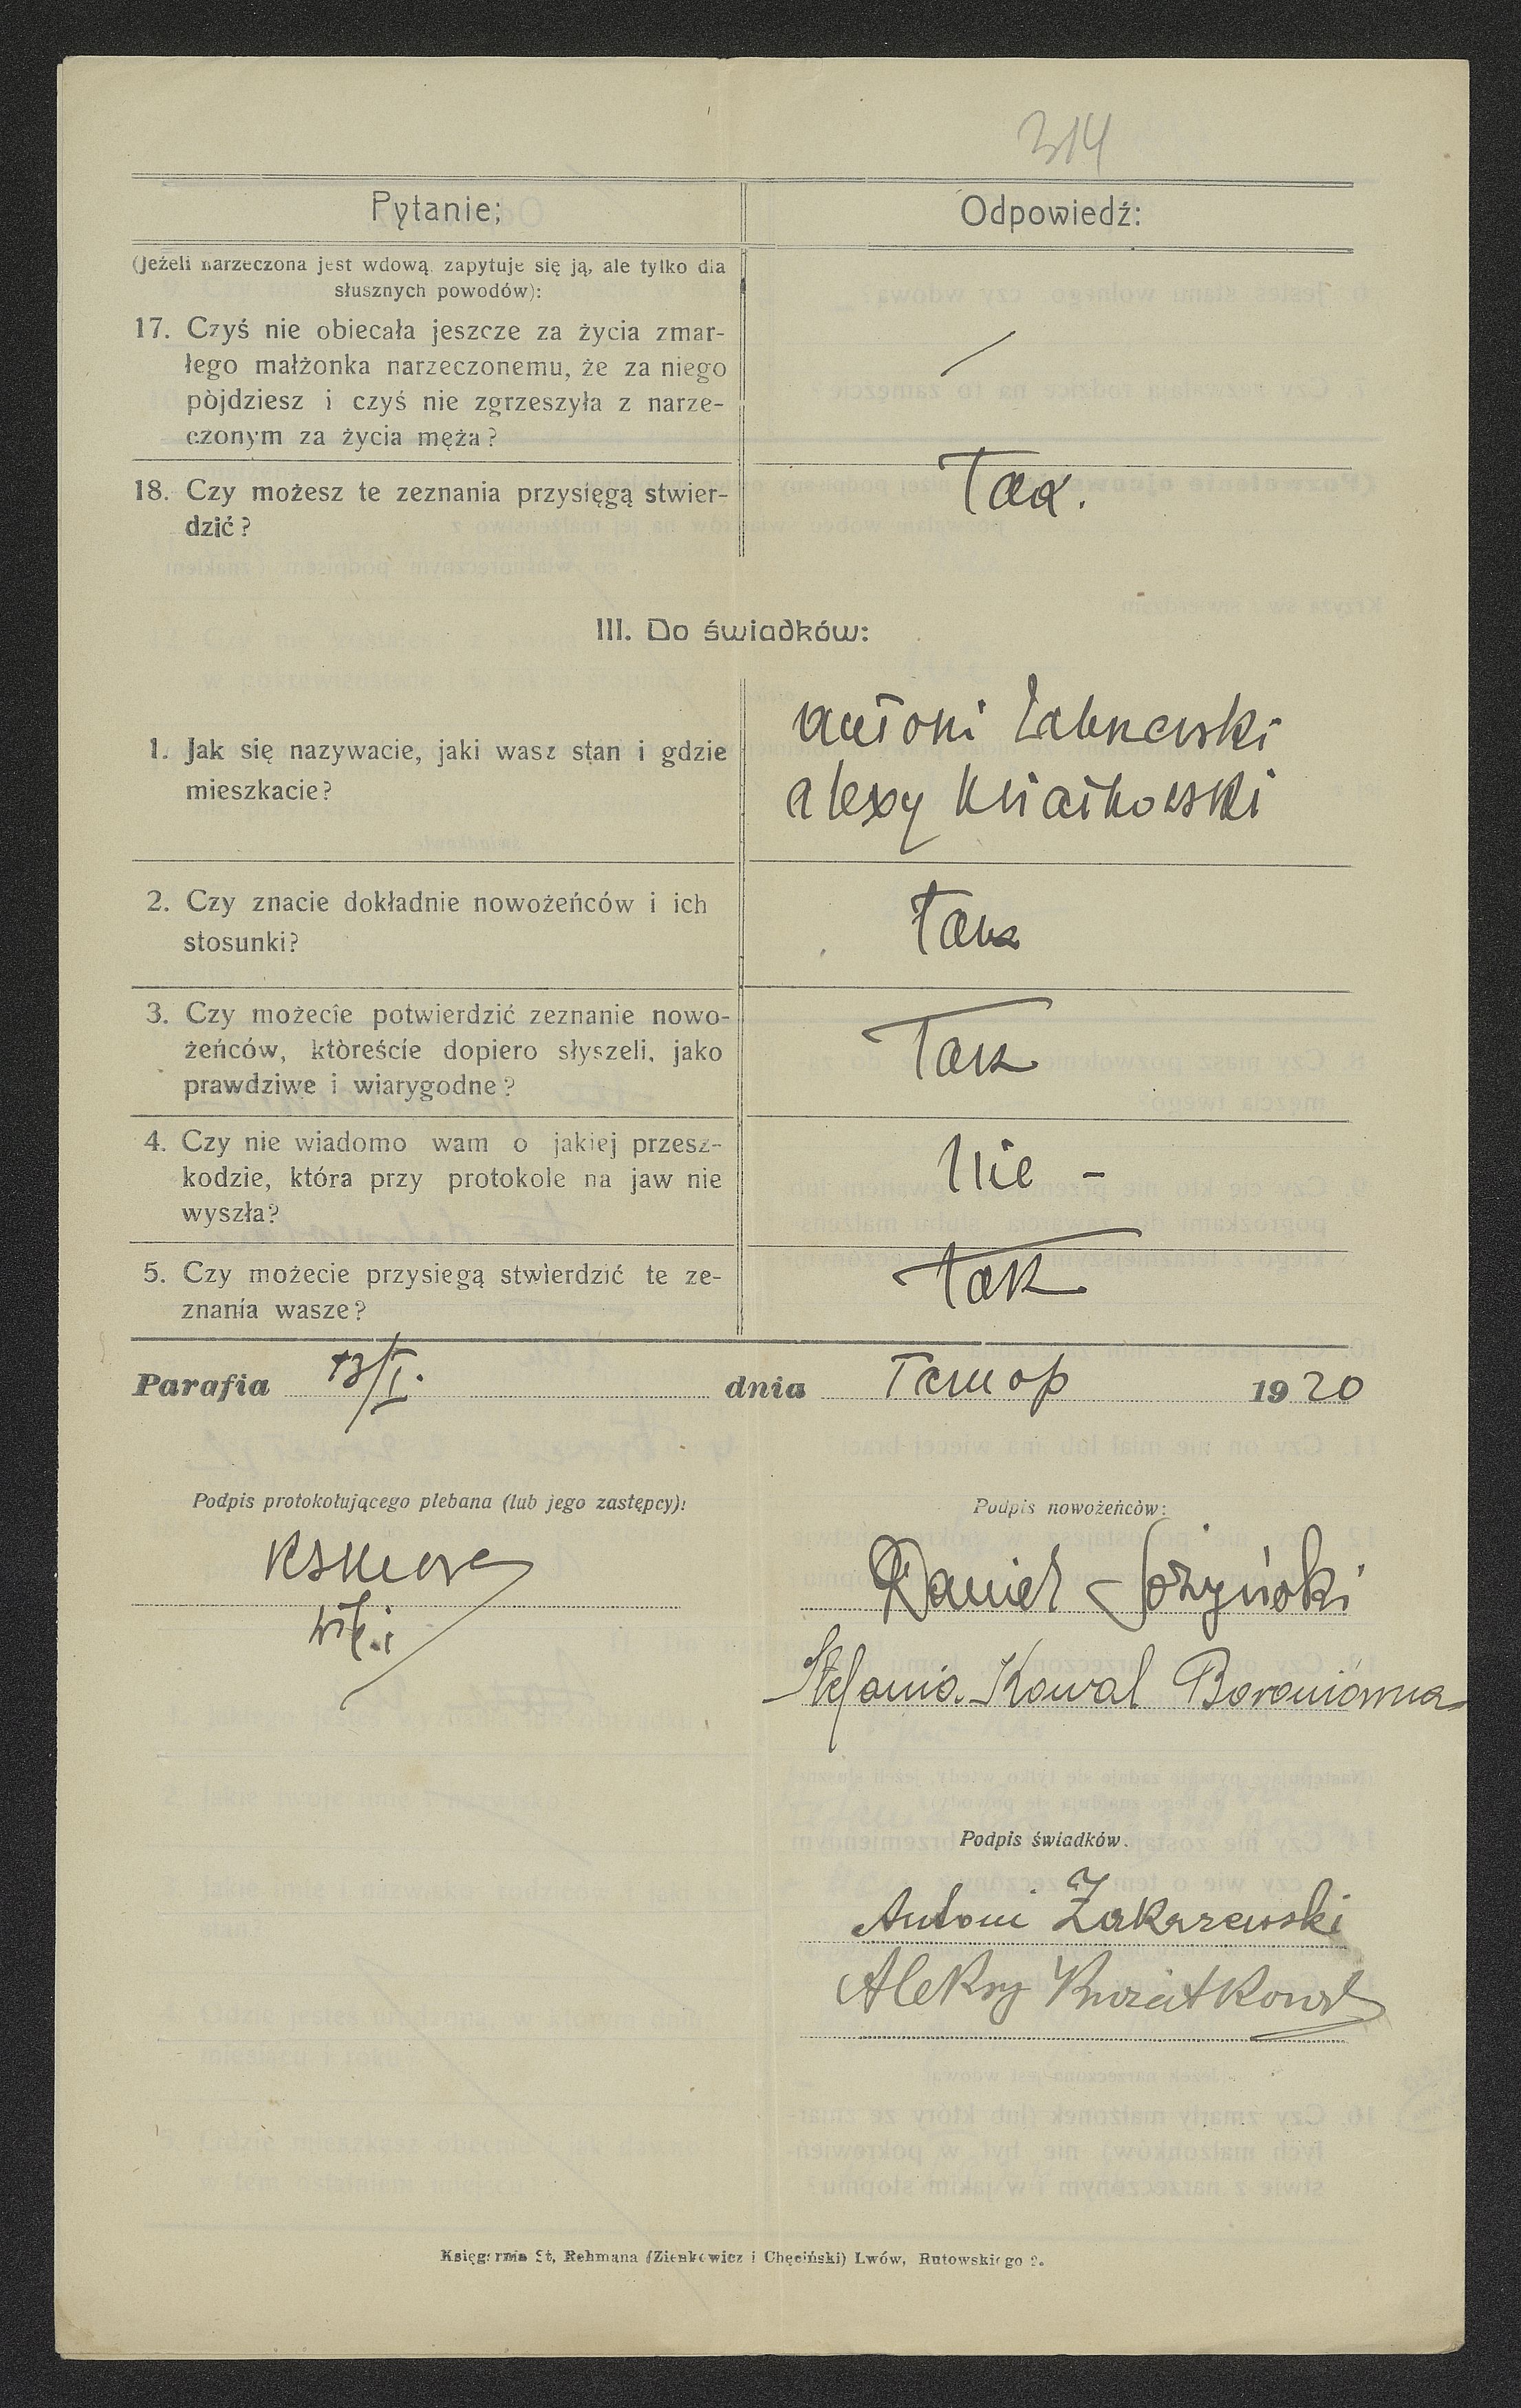 314
Pytanie; Odpowiedź:
(Jeżeli narzeczona jest wdową, zapytuje się ją, ale tylko dla
słusznych powodów):
17. Czyś nie obiecała jeszcze za życia zmar-
łego małżonka narzeczonemu, że za niego
pòjdziesz i czyś nie zgrzeszyła z narze-
czonym za życia męża?
18. Czy możesz te zeznania przysięgą stwier- Tak.
dzić?
III. Do świadków:
Antoni
1. Jak się nazywacie, jaki wasz stan i gdzie
mieszkacie?
Alexy Kwiatkowski
2. Czy znacie dokładnie nowożeńców i ich Tak
stosunki?
3. Czy możecie potwierdzić zeznanie nowo-
żeńców, któreście dopiero słyszeli, jako Tak
prawdziwe i wiarygodne?
4. Czy nie wiadomo wam o jakiej przesz-
kodzie, która przy protokole na jaw nie Nie -
wyszła?
5. Czy możecie przysiegą stwierdzić te ze- Tak
znania wasze?
Parafia 13/I. dnia Tarnop 1920
Podpis protokołującego plebana (lub jego zastępcy): Podpis nowożeńców:
Daniel
Stefania Kowal Baroniówna
Podpis świadków.
Antoni Zakrzewski
Aleksy Kwiatkowski
Księgarnia St, Rehmana (Zienkowicz i Chęciński) Lwów, Rutowskiego 2.